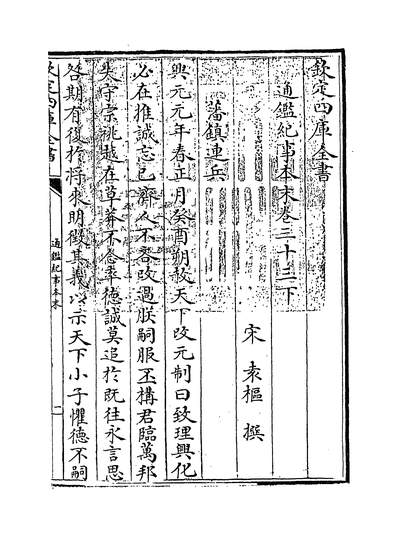 欽定四庫全書
通鑑紀事本末卷三十三下
宋 袁樞 撰
藩鎮連兵
興元元年春正月癸酉朔赦天下改元制曰致理興化
必在推誠忘己濟人不吝改過朕嗣服丕構君臨萬邦
失守宗祧越在草莽不念率德誠莫追於既往永言思
咎期有復於將來明徵其義以示天下小子懼德不嗣
欽定四庫全書
通鑑紀事本末